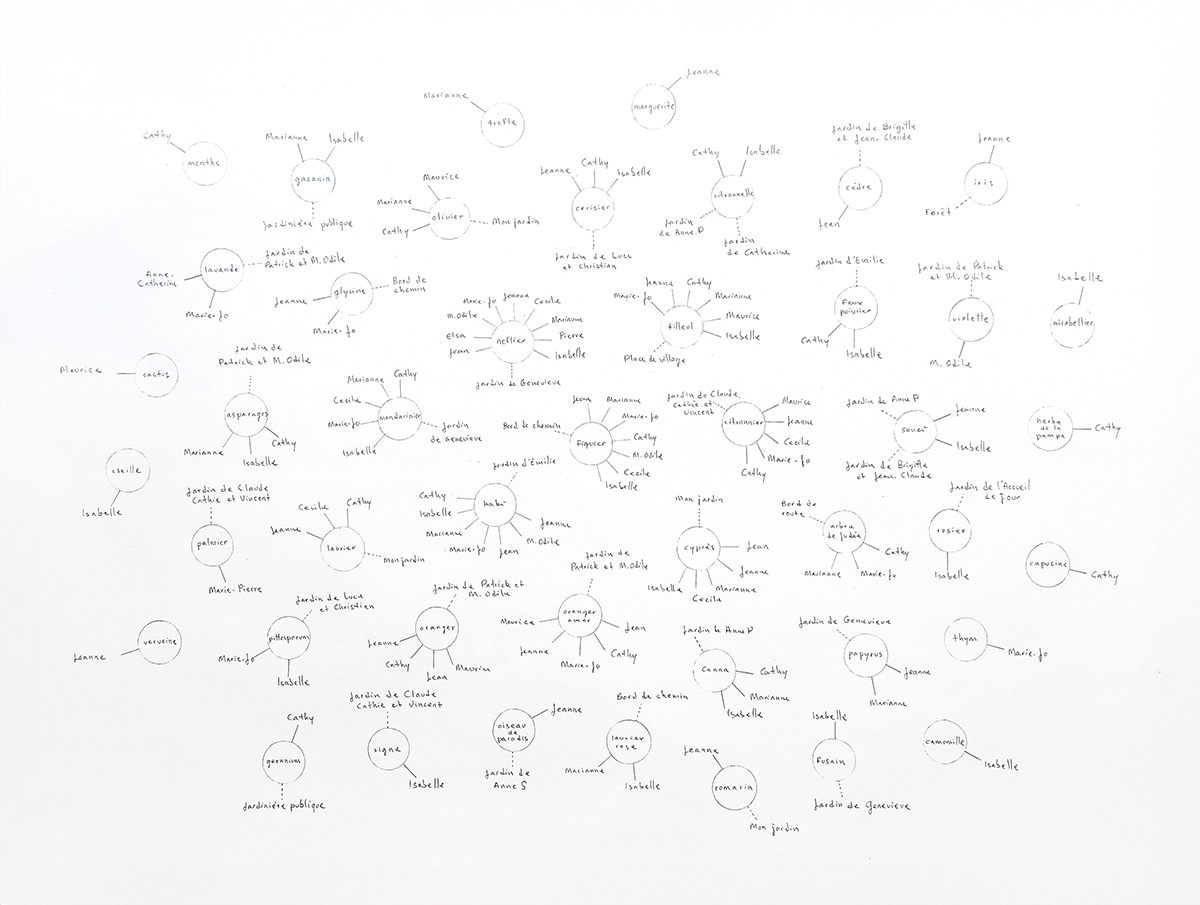 Jeanne
Marianne
trefle
marguerite
Cathy
menthe
Marianne
Isabelle
gazania
Jardinière publique
Maurice
Marianne
olivier
Cathy
Mon jardin
Jeanne
Cathy
Isabelle
cerisier
Jardin de Luce
et Christian
Cathy
Isabelle
citronnelle
Jardin
de Anne.P
Jardin
de Catherine
Jardin de Brigitte
et Jean-Claude
cèdre
Jean
Jeanne
iris
Forêt
lavande
Jardin de
Patrick et M.Odile
Anne-
Catherine
Marie-Jo
glycine
Bord de
chemin
Jeanne
Marie-Jo
Marie-Jo
Jeanne
Cecile
M.Odile
Marianne
Elsa
neflier
Pierre
Jean
Isabelle
Jardin de Genevieve
Jeanne
Cathy
Marie-Jo
Marianne
tilleul
Maurice
Isabelle
Place de village
Jardin d'Emilie
Faux
poivrier
Cathy
Isabelle
Jardin de Patrick
et M. Odile
violette
M. Odile
Isabelle
mirabellier
Maurice
cactus
Jardin de
Patrick et M.Odile
asparagos
Marianne
Isabelle
Cathy
Marianne
Cathy
Cecile
Marie-Jo
mandarinier
Isabelle
Jardin
de Genevieve
Jean
Marianne
Bord de chemin
Marie-Jo
figuier
Cathy
M.Odile
Cecile
Isabelle
Jardin de Claude,
Cathie et
Vincent
citronnier
Maurice
Jeanne
Cecile
Marie-Jo
Cathy
Jardin de Anne P
Jeanne
souci
Isabelle
Jardin de Brigitte
et Jean-Claude
herbe
de la
pampa
Cathy
oseille
Isabelle
Jardin de Claude
Cathie et Vincent
palmier
Marie-Pierre
Cecile
Cathy
Jeanne
laurier
Mon jardin
Jardin d'Emilie
Cathy
Isabelle
Marianne
Marie-Jo
Jean
M.Odile
Jeanne
Mon jardin
cyprès
Jean
Jeanne
Isabelle
Marianne
Cecile
Bord de
route
arbre
de judée
Cathy
Marianne
Marie-Jo
Jardin de l'Accueil
de Jour
rosier
Isabelle
capucine
Cathy
verveine
Jeanne
Jardin de Luce
et Christian
pittosporum
Marie-Jo
Isabelle
Jardin de Patrick et
M. Odile
oranger
Jeanne
Cathy
Jean
Maurice
Jardin de
Patrick et M.Odile
oranger
amer
Maurice
Jean
Jeanne
Cathy
Marie-Jo
Jardin de Anne P
canna
Cathy
Marianne
Isabelle
Jardin de Genevieve
papyrus
Jeanne
Marianne
thym
Marie-Jo
Cathy
geranium
Jardinière publique
Jardin de Claude
Cathie et Vincent
vigne
Isabelle
oiseau
de
paradis
Jeanne
Jardin de
Anne S
Bord de chemin
laurier
rose
Marianne
Isabelle
Jeanne
romarin
Mon jardin
Isabelle
Fusain
Jardin de Genevieve
camomille
Isabelle